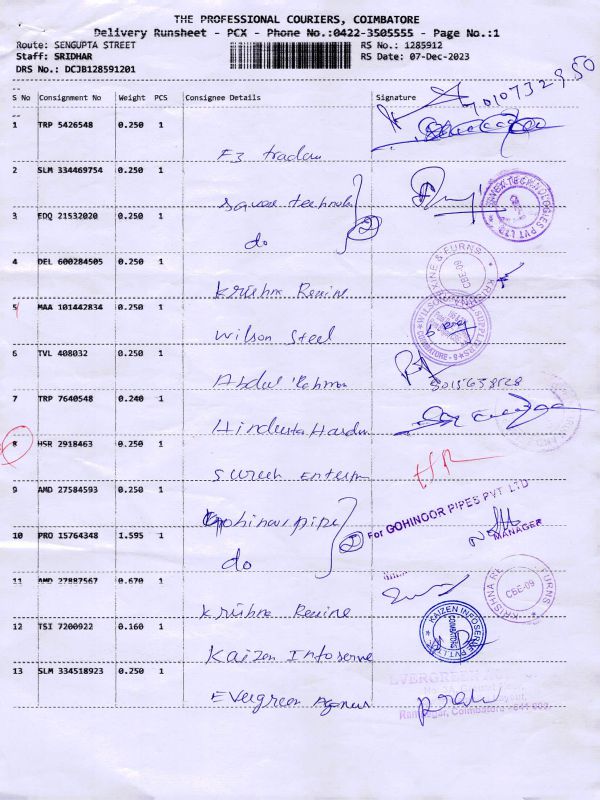 THE PROFESSIONAL COURIERS, COIMBATORE
Delivery Runsheet - PCX - Phone No.:0422-3505555 - Page No.:1
Route: SENGUPTA STREET RS No.: 1285912
Staff: SRIDHAR RS Date: 07-Dec-2023
DRS No.: DCJB128591201
S No Consignment No Weight PCS Consignee Details Signature
1 TRP 5426548 0.250 1
2 SLM 334469754 0.250 1
3 EDQ 21532020 0.250 1
do
4 DEL 600284505 0.250 1
Krishna Rexine
5 MAA 101442834 0.250 1
Wilson Steel
6 TVL 408032 0.250 1
Abdul Rahman
7 TRP 7640548 0.240 1
8 HSR 2918463 0.250 1
Suresh Enterp
9 AMD 27584593 0.250 1
For GOHINOOR PIPES PVT LTD
10 PRO 15764348 1.595 1
MANAGER
do
11 AMD 27887567 0.670 1
KRISHNA CBE-09
Krishna Rexine
12 TSI 7200922 0.160 1
KAIZEN INFOSERVE PVT LTD COIMBATORE
Kaizen Infoserve
13 SLM 334518923 0.250 1
EVERGREEN
Evergreen
Coimbatore